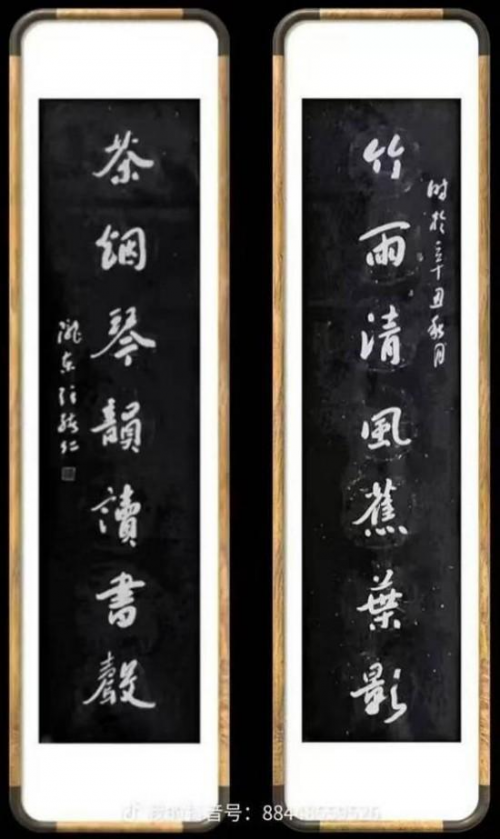 竹雨清風蕉葉影
时於辛丑秋月
茶烟琴韻讀書聲
隴東